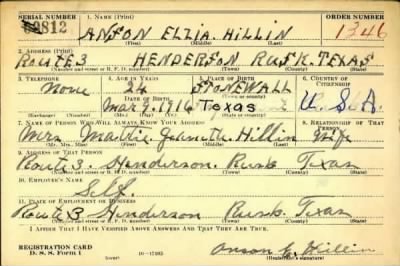 SERIAL NUMBER 1. NAME (Print) ORDER NUMBER
812 ANSON ELZIA HILLIN 1346
(First) (Middle) (Last)
2. ADDRESS (Print)
ROUTE 3 HENDERSON RUSK, TEXAS
(Number and street or R. F. D. number) (Town) (County) (State)
3. TELEPHONE 4. AGE IN YEARS 5. PLACE OF BIRTH 6. COUNTRY OF CITIZENSHIP
None 24 STONEWALL
DATE OF BIRTH
Mar. 7, 1916 Texas U. S. A.
(Mo.) (Day) (Yr.) (State or country)
7. NAME OF PERSON WHO WILL ALWAYS KNOW YOUR ADDRESS 8. RELATIONSHIP OF THAT PERSON
Mrs. Mattie Jeanette Hillin Wife
(Mr., Mrs., Miss) (First) (Middle) (Last)
9. ADDRESS OF THAT PERSON
Route 3. Henderson. Rusk Texas
(Number and street or R. F. D. number) (Town) (County) (State)
10. EMPLOYER'S NAME
Self.
11. PLACE OF EMPLOYMENT OR BUSINESS
Route 3 Henderson Rusk. Texas
(Number and street or R. F. D. number) (Town) (County) (State)
I AFFIRM THAT I HAVE VERIFIED ABOVE ANSWERS AND THAT THEY ARE TRUE.
REGISTRATION CARD
D. S. S. Form 1 Anson E. Hillin
(Registrant's signature)